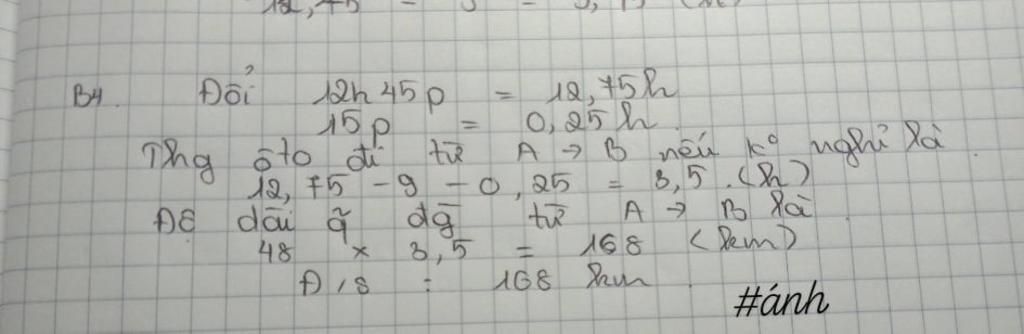 12,75 - 9 =
B4. Đổi 12h 45p = 12,75h
15p = 0,25h.
Thg ôto đi từ A → B nếu kº nghỉ là.
12,75 - 9 - 0,25 = 3,5.(h)
Độ dài q̃ đg từ A → B là
48 x 3,5 = 168 (km)
Đ,s : 168 km
#ánh